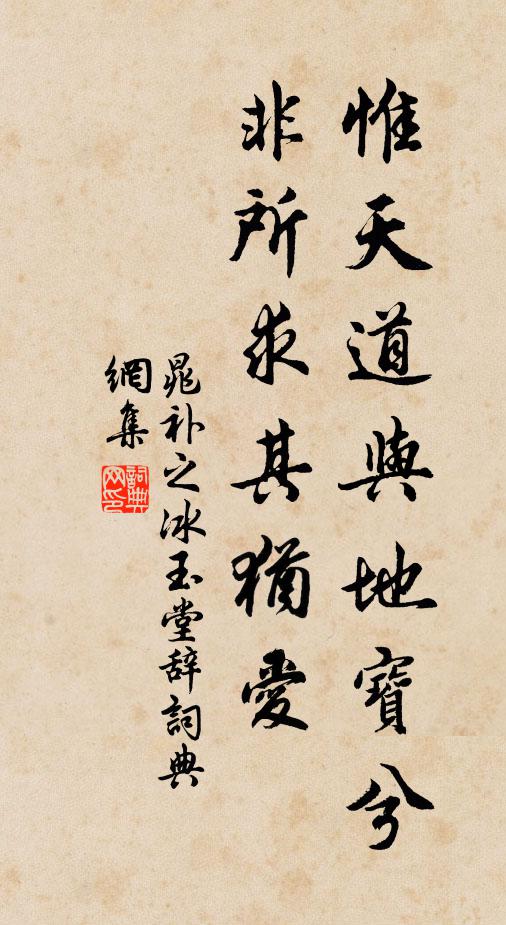 惟天道與地寶兮
非所求其猶愛
晁补之冰玉堂辞詞典
網集
詞典
网印